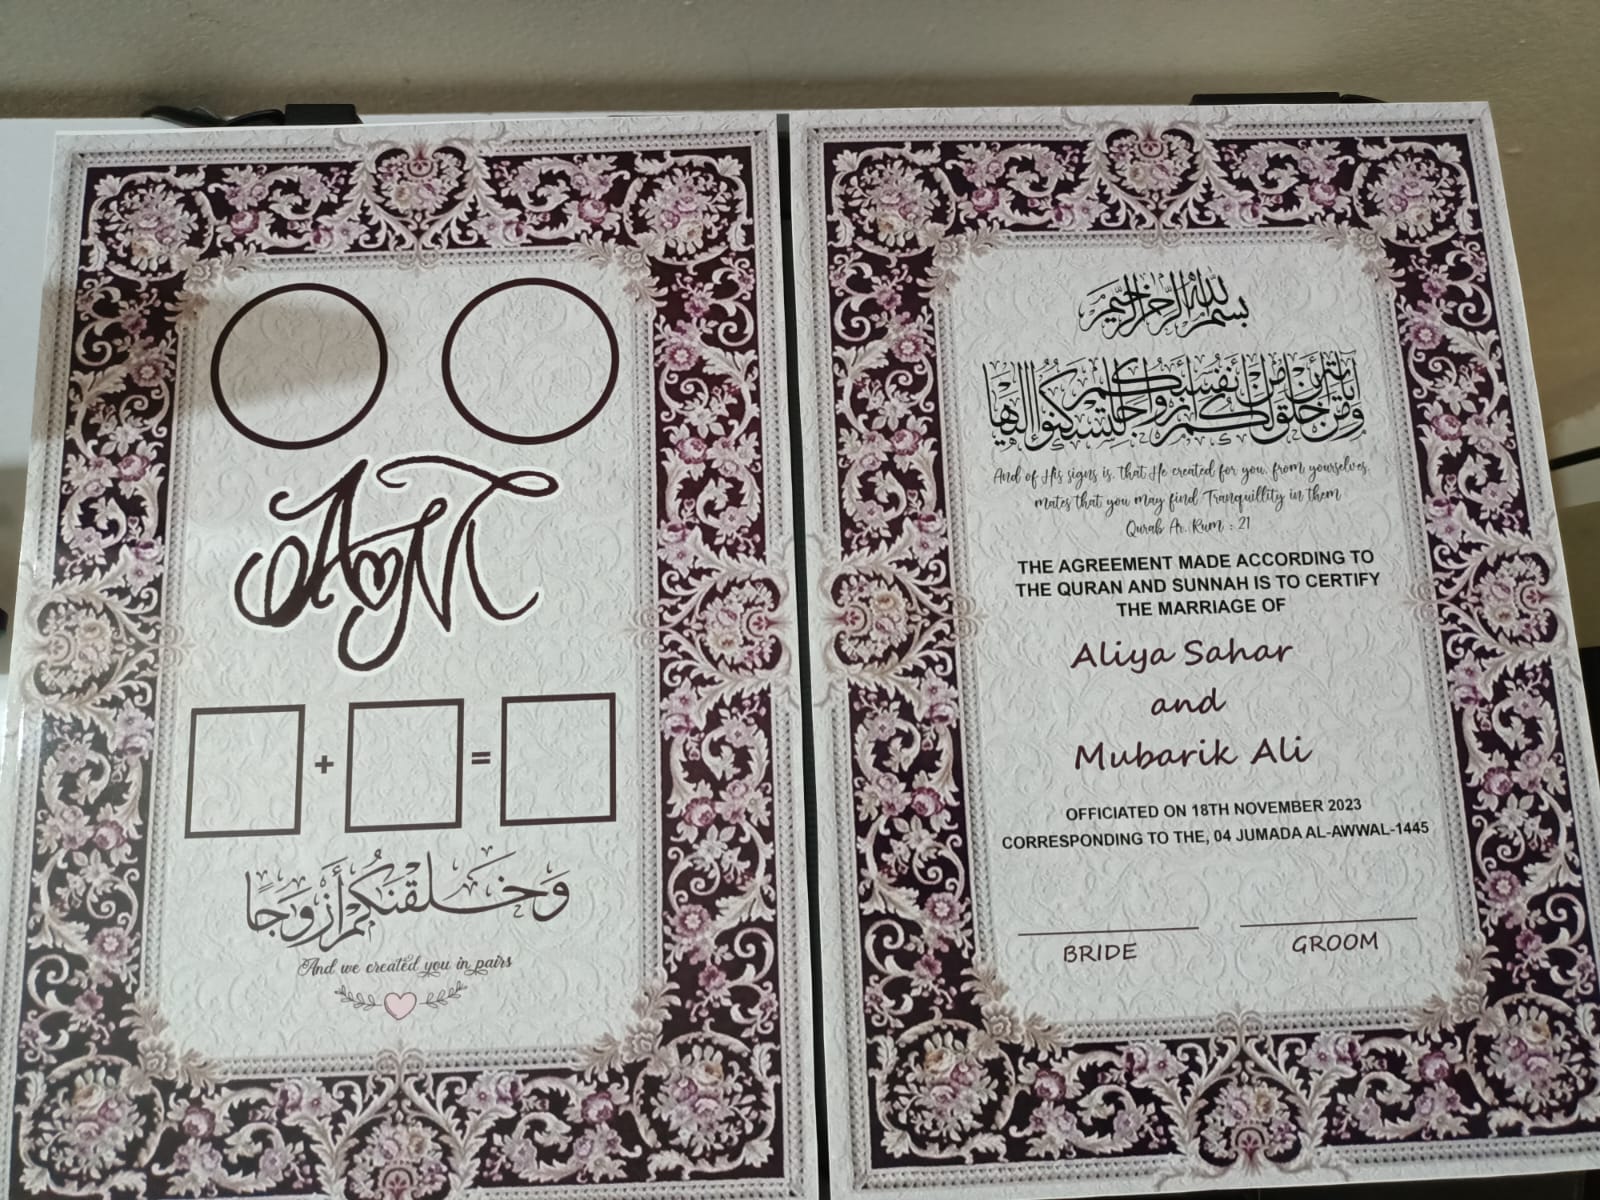 A M
+ =
وَخَلَقْنَكُمْ أَزْوَجًا
And we created you in pairs
بسم الله الرحمن الرحيم
ومن آياته أن خلق لكم من أنفسكم أزواجا لتسكنوا إليها
And of His signs is, that He created for you, from yourselves,
mates that you may find Tranquillity in them
Qurab Ar. Rum : 21
THE AGREEMENT MADE ACCORDING TO
THE QURAN AND SUNNAH IS TO CERTIFY
THE MARRIAGE OF
Aliya Sahar
and
Mubarik Ali
OFFICIATED ON 18TH NOVEMBER 2023
CORRESPONDING TO THE, 04 JUMADA AL-AWWAL-1445
BRIDE GROOM